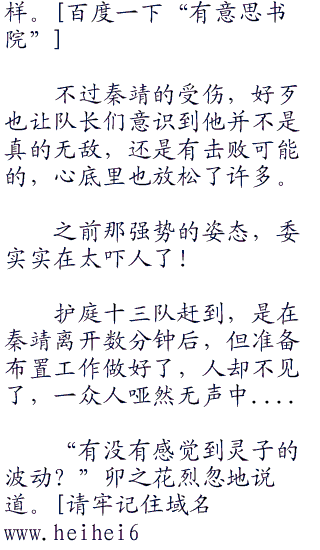 样。[百度一下“有意思书
院”]
不过秦靖的受伤，好歹
也让队长们意识到他并不是
真的无敌，还是有击败可能
的，心底里也放松了许多。
之前那强势的姿态，委
实实在太吓人了！
护庭十三队赶到，是在
秦靖离开数分钟后，但准备
布置工作做好了，人却不见
了，一众人哑然无声中....
“有没有感觉到灵子的
波动？”卯之花烈忽地说
道。[请牢记住域名
www.heihei6